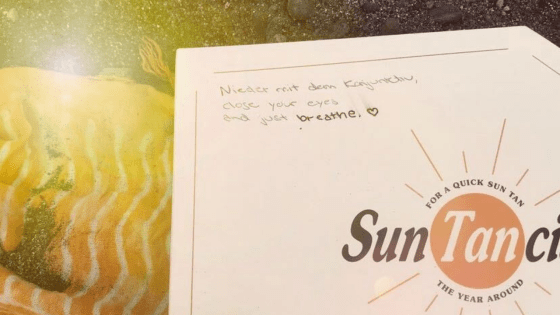 Nieder mit dem Konjunktiv,
close your eyes
and just breathe. ♡
FOR A QUICK SUN TAN
Sun Tan ci
THE YEAR AROUND